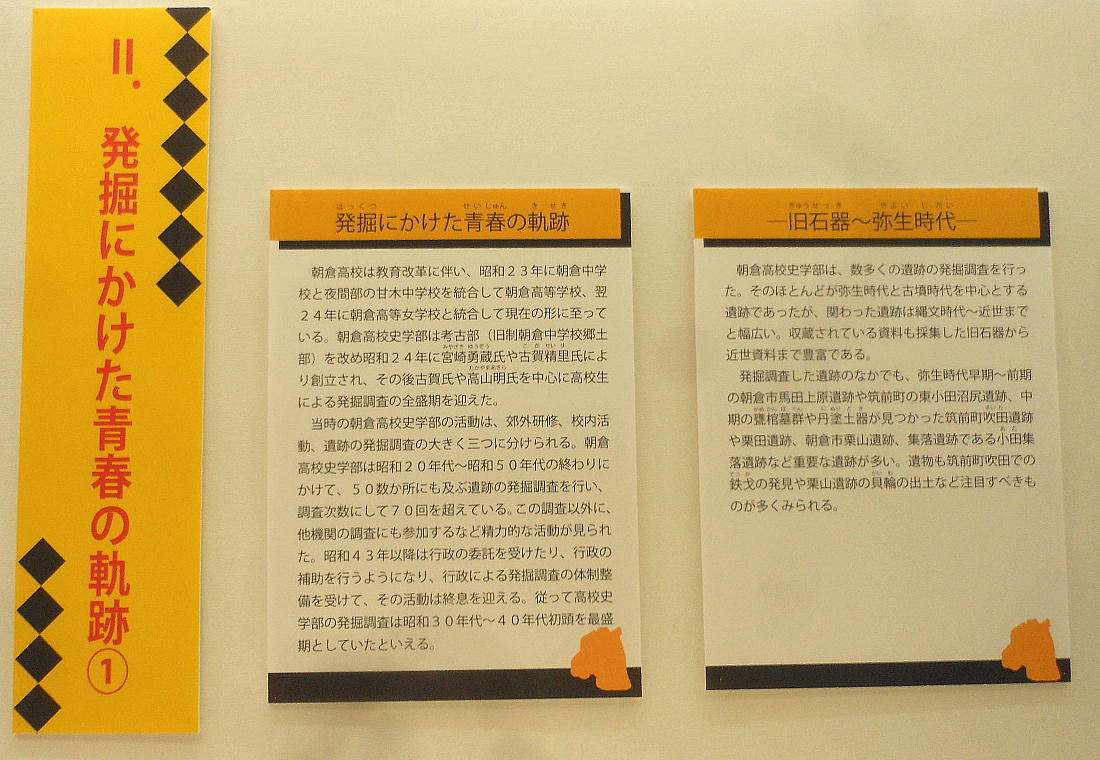 II. 発掘にかけた青春の軌跡①
はっくつ せいしゅん きせき
発掘にかけた青春の軌跡
朝倉高校は教育改革に伴い、昭和２３年に朝倉中学
校と夜間部の甘木中学校を統合して朝倉高等学校、翌
２４年に朝倉高等女学校と統合して現在の形に至って
いる。朝倉高校史学部は考古部（旧制朝倉中学校郷土
部）を改め昭和２４年に宮崎勇蔵氏や古賀精里氏によ
みやざき ゆうぞう こが せいり
り創立され、その後古賀氏や高山明氏を中心に高校生
たかやまあきら
による発掘調査の全盛期を迎えた。
当時の朝倉高校史学部の活動は、郊外研修、校内活
動、遺跡の発掘調査の大きく三つに分けられる。朝倉
高校史学部は昭和２０年代～昭和５０年代の終わりに
かけて、５０数か所にも及ぶ遺跡の発掘調査を行い、
調査次数にして７０回を超えている。この調査以外に、
他機関の調査にも参加するなど精力的な活動が見られ
た。昭和４３年以降は行政の委託を受けたり、行政の
補助を行うようになり、行政による発掘調査の体制整
備を受けて、その活動は終息を迎える。従って高校史
学部の発掘調査は昭和３０年代～４０年代初頭を最盛
期としていたといえる。
きゅうせっき やよい じだい
―旧石器～弥生時代―
朝倉高校史学部は、数多くの遺跡の発掘調査を行っ
た。そのほとんどが弥生時代と古墳時代を中心とする
遺跡であったが、関わった遺跡は縄文時代～近世まで
と幅広い。収蔵されている資料も採集した旧石器から
近世資料まで豊富である。
発掘調査した遺跡のなかでも、弥生時代早期～前期
の朝倉市馬田上原遺跡や筑前町の東小田沼尻遺跡、中
期の甕棺墓群や丹塗土器が見つかった筑前町吹田遺跡
かめかんぼぐん にぬりどき すいた
や栗田遺跡、朝倉市栗山遺跡、集落遺跡である小田集
おた
落遺跡など重要な遺跡が多い。遺物も筑前町吹田での
鉄戈の発見や栗山遺跡の貝輪の出土など注目すべきも
てっか かいわ
のが多くみられる。